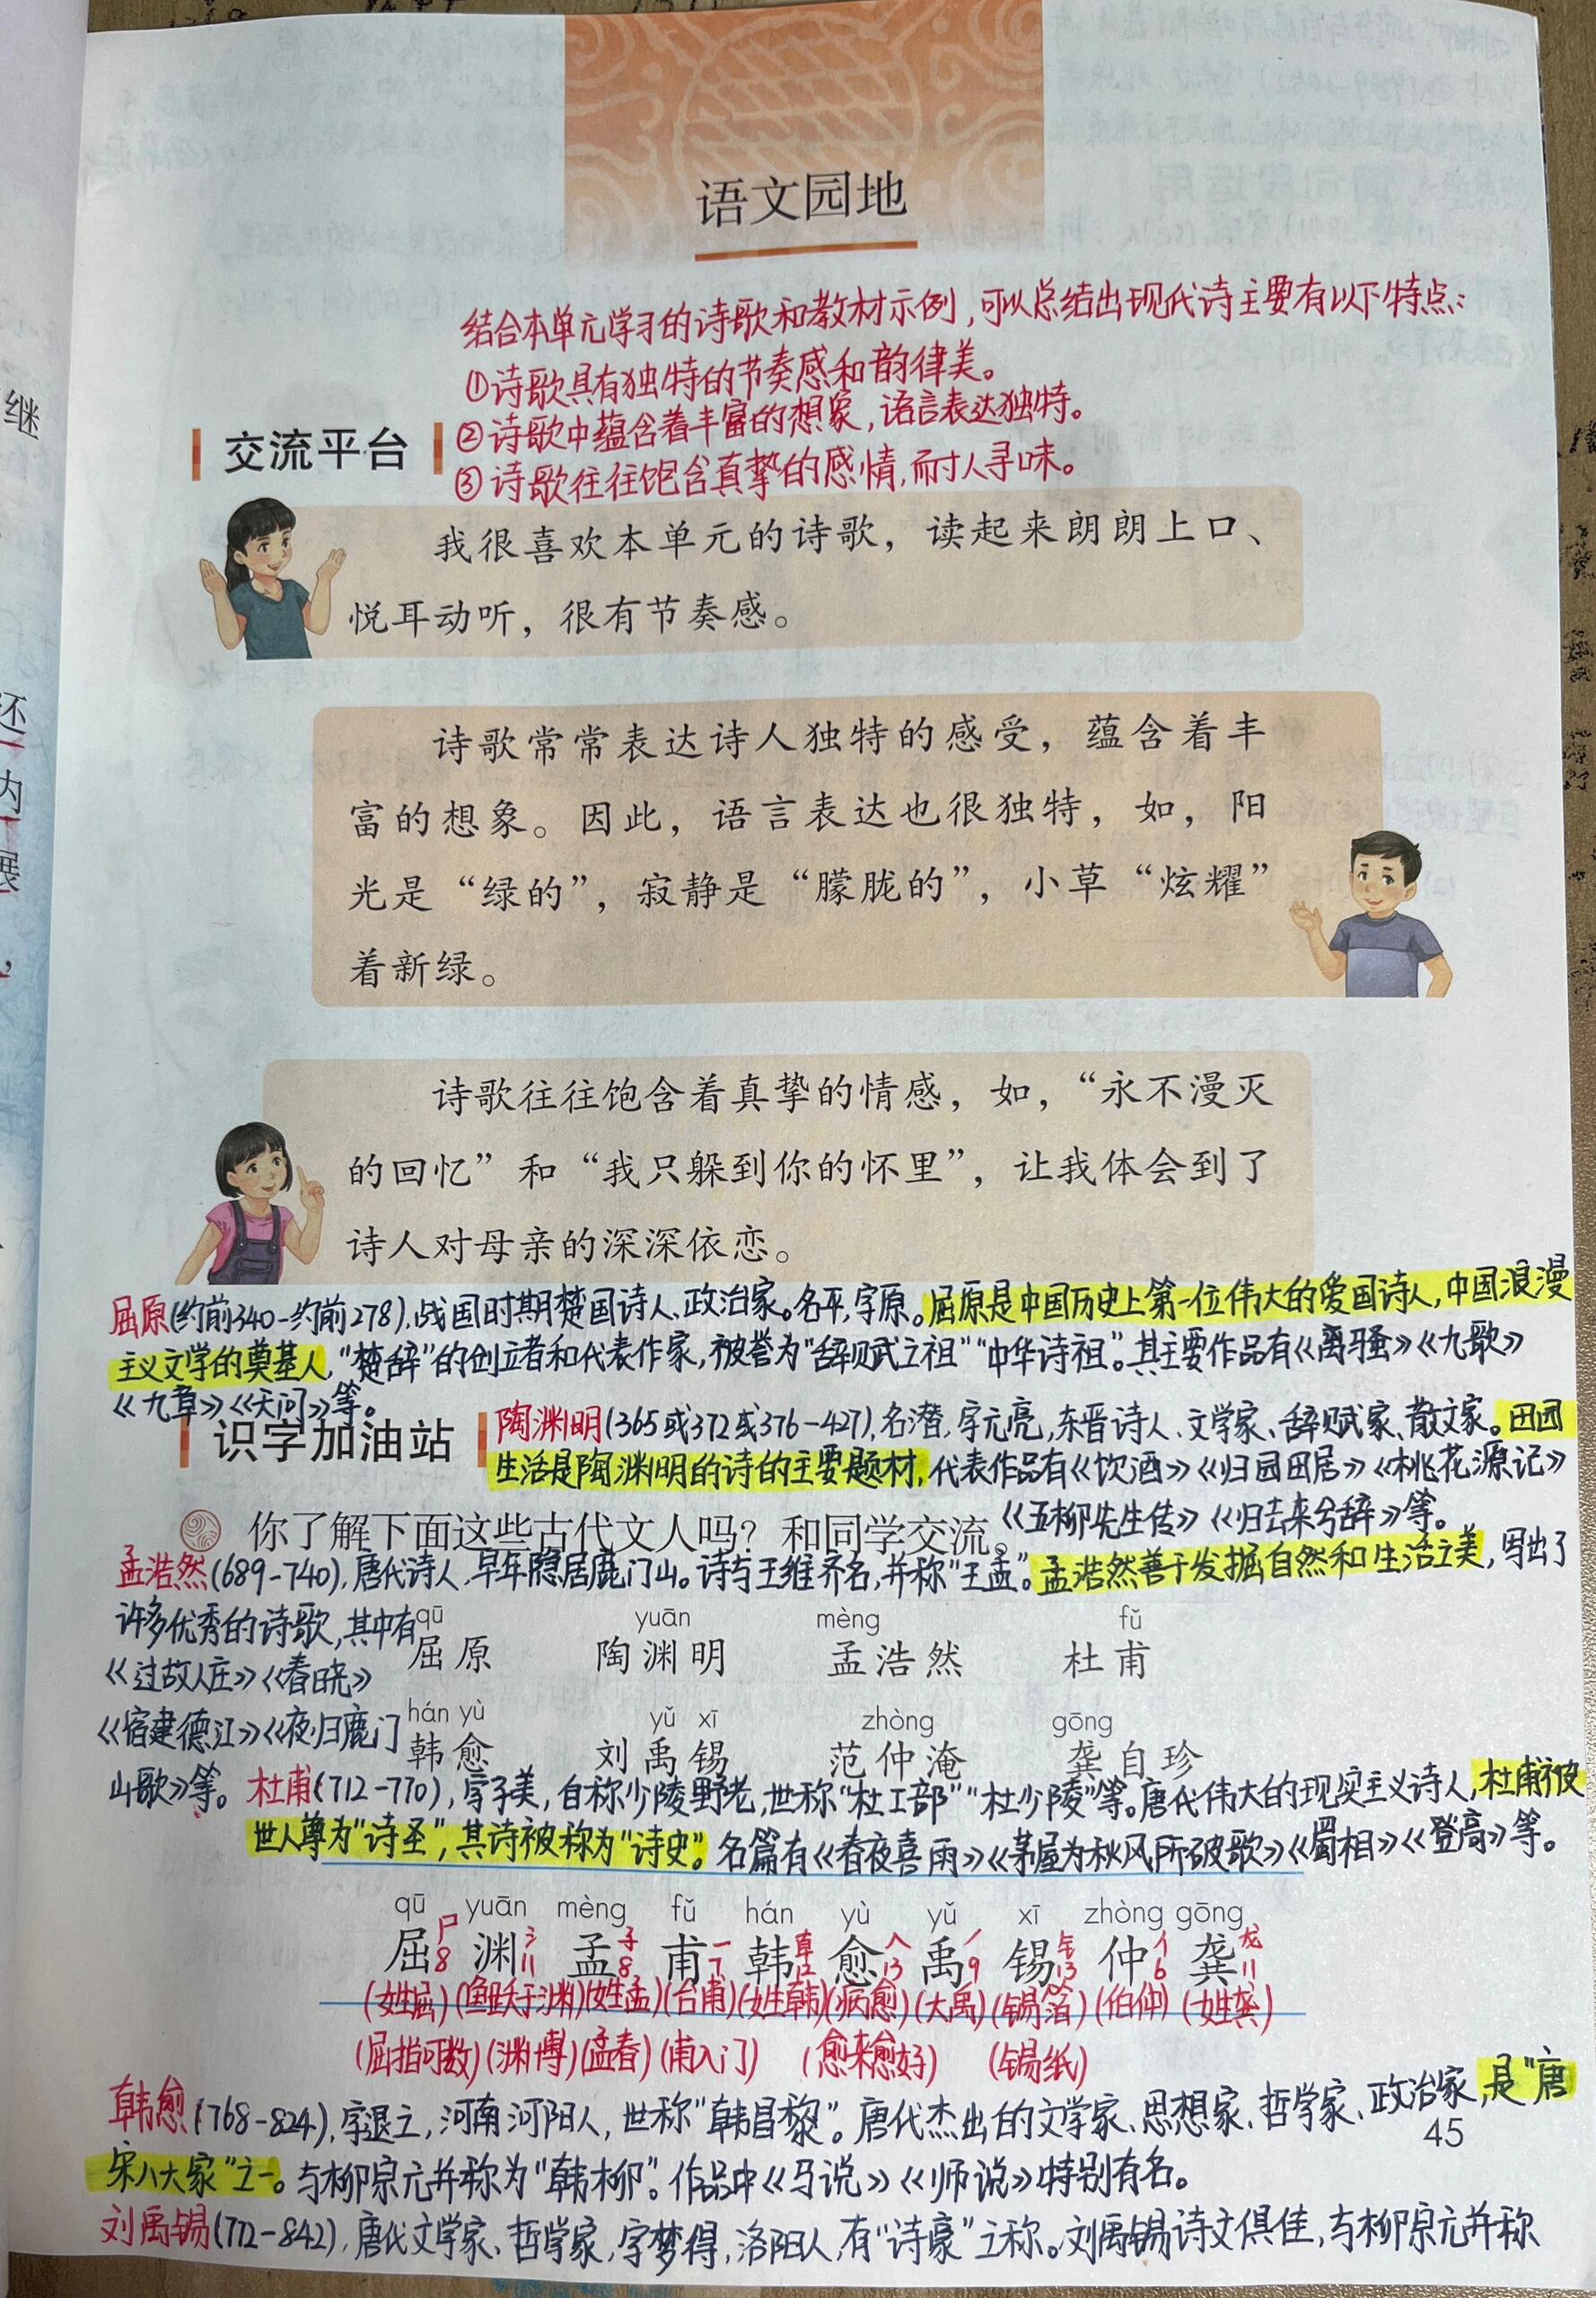 语文园地
结合本单元学习的诗歌和教材示例,可以总结出现代诗主要有以下特点:
①诗歌具有独特的节奏感和韵律美。
②诗歌中蕴含着丰富的想象,语言表达独特。
③诗歌往往饱含真挚的感情,耐人寻味。
交流平台
我很喜欢本单元的诗歌，读起来朗朗上口、
悦耳动听，很有节奏感。
诗歌常常表达诗人独特的感受，蕴含着丰
富的想象。因此，语言表达也很独特，如，阳
光是“绿的”，寂静是“朦胧的”，小草“炫耀”
着新绿。
诗歌往往饱含着真挚的情感，如，“永不漫灭
的回忆”和“我只躲到你的怀里”，让我体会到了
诗人对母亲的深深依恋。
屈原(约前340-约前278),战国时期楚国诗人、政治家。名平,字原。屈原是中国历史上第一位伟大的爱国诗人,中国浪漫
主义文学的奠基人,“楚辞”的创立者和代表作家,被誉为“辞赋之祖”“中华诗祖”。其主要作品有《离骚》《九歌》
《九章》《天问》等。
识字加油站
陶渊明(365或372或376-427),名潜,字元亮,东晋诗人、文学家、辞赋家、散文家。田园
生活是陶渊明的诗的主要题材,代表作品有《饮酒》《归园田居》《桃花源记》
《五柳先生传》《归去来兮辞》等。
你了解下面这些古代文人吗？和同学交流。
孟浩然(689-740),唐代诗人,早年隐居鹿门山。诗与王维齐名,并称“王孟”。孟浩然善于发掘自然和生活之美,写出了
许多优秀的诗歌,其中有
《过故人庄》《春晓》
《宿建德江》《夜归鹿门
山歌》等。
qū yuān mèng fǔ
屈原 陶渊明 孟浩然 杜甫
hán yù yǔ xī zhòng gōng
韩愈 刘禹锡 范仲淹 龚自珍
杜甫(712-770),字子美,自称少陵野老,世称“杜工部”“杜少陵”等。唐代伟大的现实主义诗人,杜甫被
世人尊为“诗圣”,其诗被称为“诗史”。名篇有《春夜喜雨》《茅屋为秋风所破歌》《蜀相》《登高》等。
qū yuān mèng fǔ hán yù yǔ xī zhòng gōng
屈 尸 8 渊 氵 11 孟 子 8 甫 一 7 韩 12 愈 人 13 禹 丿 9 锡 钅 13 仲 亻 6 龚 龙 11
(姓屈)(鱼跃于渊)(姓孟)(台甫)(姓韩)(病愈)(大禹)(锡箔)(伯仲)(姓龚)
(屈指可数)(渊博)(孟春)(甫入门)(愈来愈好)(锡纸)
韩愈(768-824),字退之,河南河阳人,世称“韩昌黎”。唐代杰出的文学家、思想家、哲学家、政治家,是“唐
宋八大家”之一。与柳宗元并称为“韩柳”。作品中《马说》《师说》特别有名。
刘禹锡(772-842),唐代文学家、哲学家,字梦得,洛阳人,有“诗豪”之称。刘禹锡诗文俱佳,与柳宗元并称
45
继
还
内
展